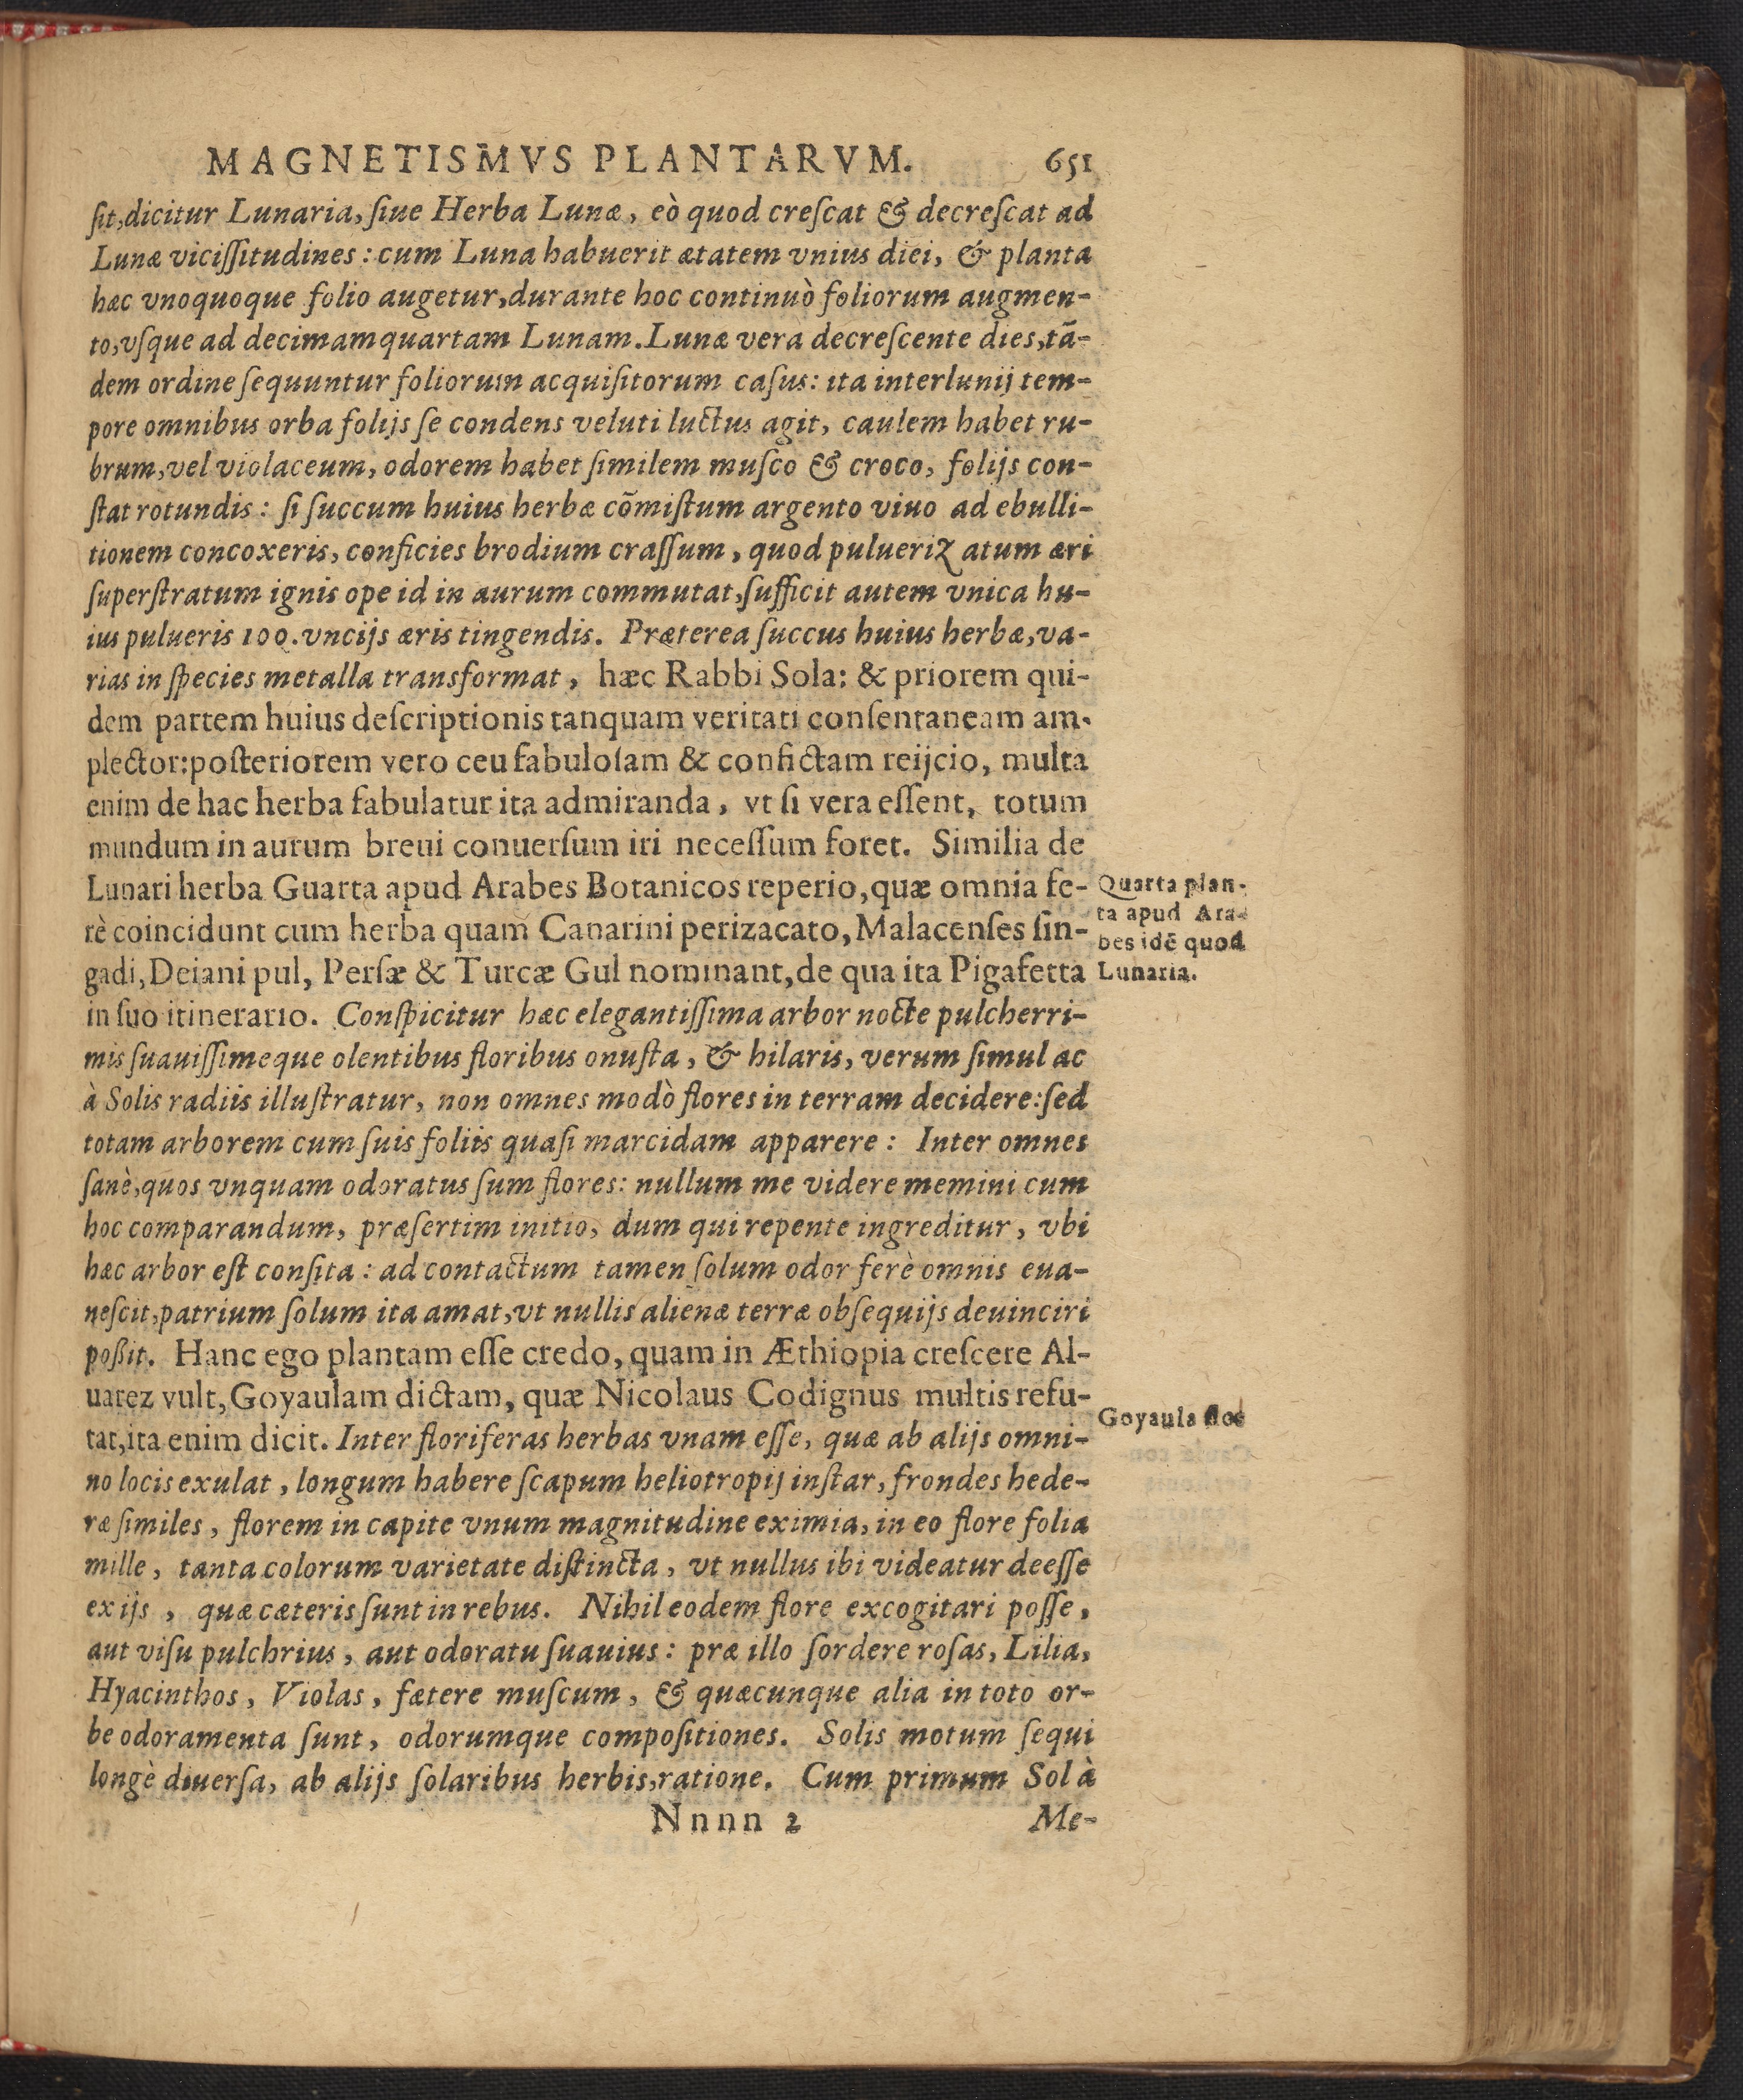 MAGNETISMVS PLANTARVM. 651
ſit,dicitur Lunaria, ſiue Herba Lunæ, eò quod creſcat & decreſcat ad
Lunæ viciſſitudines: cum Luna habuerit ætatem vnius diei, & planta
hæc vnoquoque folio augetur,durante hoc continuò foliorum augmen-
to,vſque ad decimamquartam Lunam. Lunæ vera decreſcente dies,tã-
dem ordine ſequuntur foliorum acquiſitorum caſus: ita interlunij tem-
pore omnibus orba folijs ſe condens veluti luctus agit, caulem habet ru-
brum,vel violaceum, odorem habet ſimilem muſco & croco, folijs con-
ſtat rotundis: ſi ſuccum huius herbæ cõmiſtum argento viuo ad ebulli-
tionem concoxeris, conficies brodium craſſum, quod puluerizatum æri
ſuperſtratum ignis ope id in aurum commutat,ſufficit autem vnica hu-
ius pulueris 100. vncijs æris tingendis. Præterea ſuccus huius herbæ,va-
rias in ſpecies metalla transformat, hæc Rabbi Sola: & priorem qui-
dem partem huius deſcriptionis tanquam veritati conſentaneam am-
plector:poſteriorem vero ceu fabuloſam & confictam reijcio, multa
enim de hac herba fabulatur ita admiranda, vt ſi vera eſſent, totum
mundum in aurum breui conuerſum iri neceſſum foret. Similia de
Lunari herba Guarta apud Arabes Botanicos reperio,quæ omnia fe-
rè coincidunt cum herba quam Canarini perizacato, Malacenſes ſin-
gadi, Deiani pul, Perſæ & Turcæ Gul nominant,de qua ita Pigafetta
in ſuo itinerario. Conſpicitur hæc elegantiſſima arbor nocte pulcherri-
mis ſuauiſſimeque olentibus floribus onuſta, & hilaris, verum ſimul ac
à Solis radiis illuſtratur, non omnes modò flores in terram decidere:ſed
totam arborem cum ſuis foliis quaſi marcidam apparere: Inter omnes
ſanè,quos vnquam odoratus ſum flores: nullum me videre memini cum
hoc comparandum, præſertim initio, dum qui repente ingreditur, vbi
hæc arbor eſt conſita: ad contactum tamen ſolum odor ferè omnis eua-
neſcit,patrium ſolum ita amat,vt nullis alienæ terræ obſequijs deuinciri
poßit. Hanc ego plantam eſſe credo, quam in Æthiopia creſcere Al-
uarez vult, Goyaulam dictam, quæ Nicolaus Codignus multis refu-
tat,ita enim dicit. Inter floriferas herbas vnam eſſe, quæ ab alijs omni-
no locis exulat, longum habere ſcapum heliotropij inſtar, frondes hede-
ræ ſimiles, florem in capite vnum magnitudine eximia, in eo flore folia
mille, tanta colorum varietate diſtincta, vt nullus ibi videatur deeſſe
ex ijs, quæ cæteris ſunt in rebus. Nihil eodem flore excogitari poſſe,
aut viſu pulchrius, aut odoratu ſuauius: præ illo ſordere roſas, Lilia,
Hyacinthos, Violas, fætere muſcum, & quæcunque alia in toto or-
be odoramenta ſunt, odorumque compoſitiones. Solis motum ſequi
longè diuerſa, ab alijs ſolaribus herbis,ratione. Cum primum Sol à
Nnnn 2 Me-
Quarta plan-
ta apud Ara-
bes idẽ quod
Lunaria.
Goyaula flos